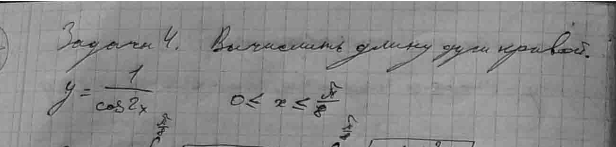 Задача 4. Вычислить длину дуги кривой.
y = 1/cos2x 0 ≤ x ≤ π/8